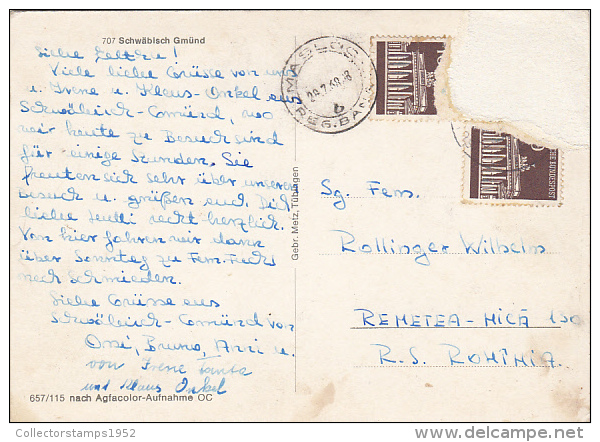 707 Schwäbisch Gmünd
Liebe Eltern!
Viele liebe Grüsse von uns
u. Irene u. Klaus-Onkel aus
Schwäbisch-Gmünd, wo
wir heute zu Besuch sind
für einige Stunden. Sie
freuten sich sehr über unseren
Besuch u. grüßen euch. Dich,
liebe Mutti recht herzlich.
Von hier fahren wir dann
über Sonntag zu Fam.
nach Schmieden.
Liebe Grüsse aus
Schwäbisch-Gmünd von
Omi, Bruno, Anni u.
von Irene Tante
und Klaus Onkel
657/115 nach Agfacolor-Aufnahme OC
Gebr. Metz, Tübingen
MASLOC
29.7.68.-8
REG. BANAT
DEUTSCHE BUNDESPOST
Sg. Fam.
Rollinger Wilhelm
REMETEA-MICĂ 130
R.S. ROMÎNIA
Collectorstamps1952
delcampe.net